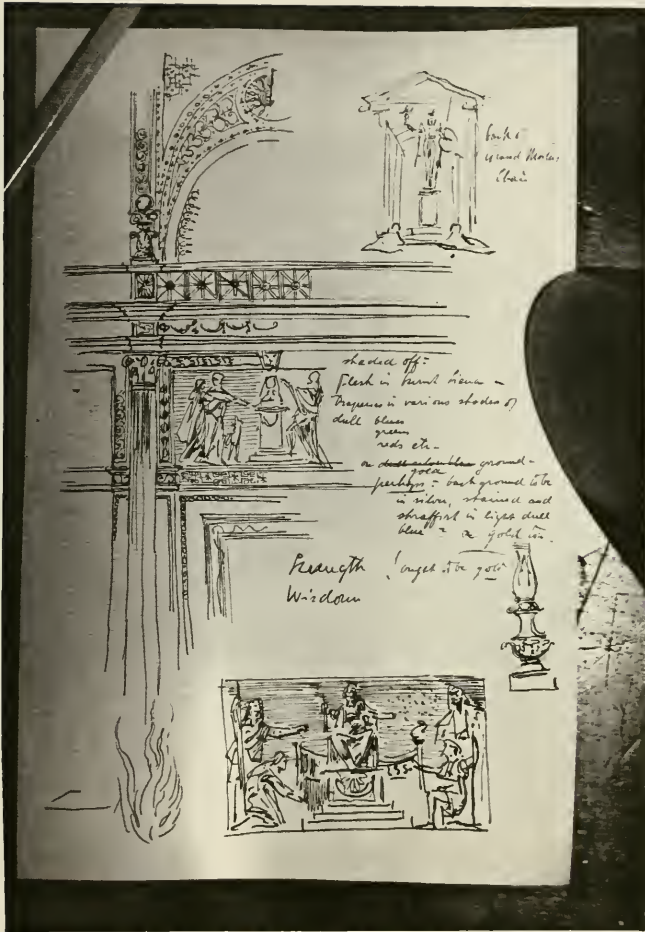 back of
Grand Master
Chair
shaded off:
Flesh in burnt sienna -
Draperies in various shades of
dull blues
greens
reds etc -
on ground -
gold
perhaps - background to be
in silver, stained and
in light dull
blue gold
Strength
! ought to be gold
Wisdom